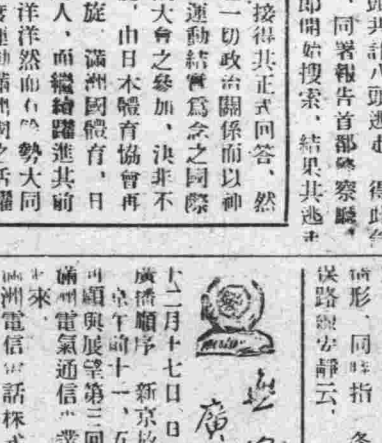 頭共計八頭逃走、得此
、同署報告首部警察廳、
即開始搜索、結果共逃走
接得其正式回答、然
一切政治關係而以神
運動結實爲念之國際
大會之參加、決非不
、由日本體育協會再
旋、滿洲國體育、日
人、而繼續躍進其前
洋洋然而有 勢大同
運動滿洲國之活躍
情形、同時指
保路線安靜云、
廣
十二月十七日、日
廣播順序 新京放
午前十一、五
回顧與展望第三回
滿洲電氣通信 業
來、
滿洲電信電話株式